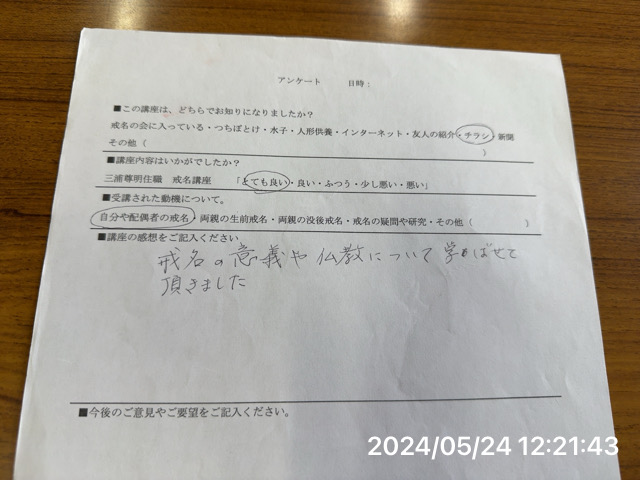 アンケート　　日時：
■この講座は、どちらでお知りになりましたか？
戒名の会に入っている・つちぼとけ・水子・人形供養・インターネット・友人の紹介・チラシ・新聞
その他（　　　　　　　　　　　　　　　　　　　　）
■講座内容はいかがでしたか？
三浦尊明住職　戒名講座　「とても良い・良い・ふつう・少し悪い・悪い」
■受講された動機について。
自分や配偶者の戒名・両親の生前戒名・両親の没後戒名・戒名の疑問や研究・その他（　　　　　）
■講座の感想をご記入ください
戒名の意義や仏教について学ばせて
頂きました
■今後のご意見やご要望をご記入ください。
2024/05/24 12:21:43